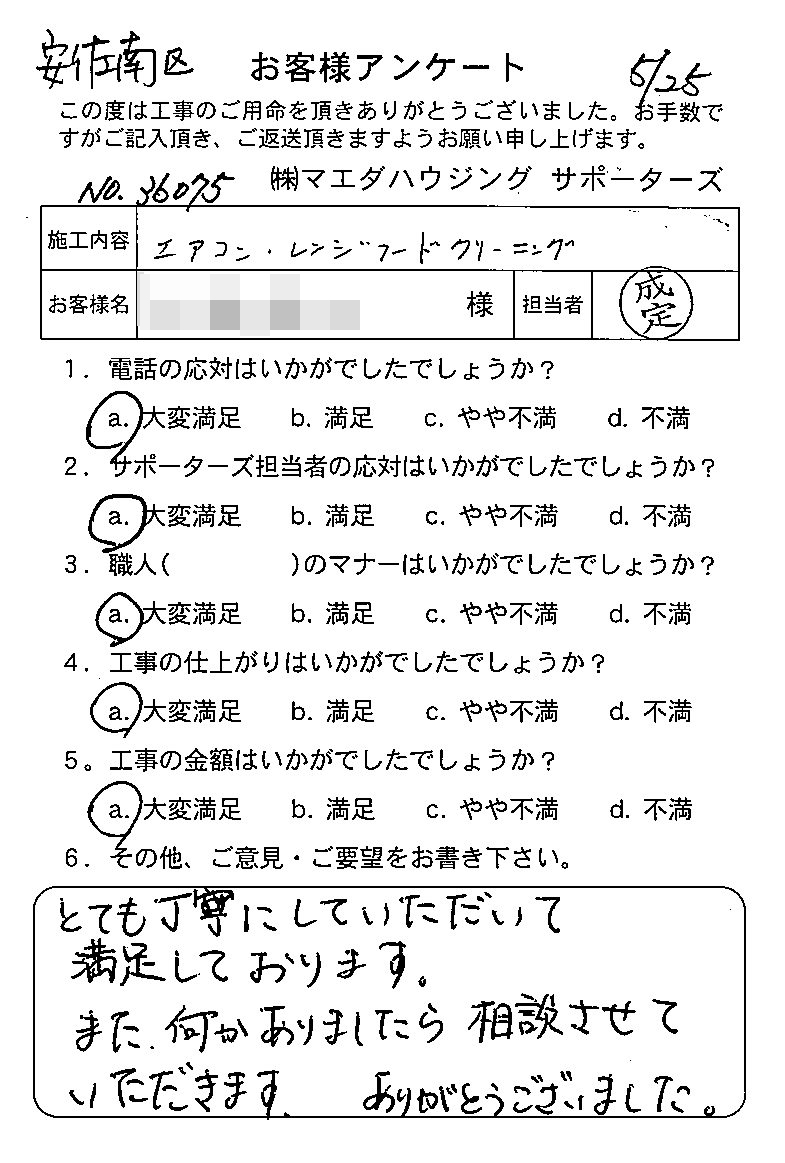 安佐南区 お客様アンケート 5/25
この度は工事のご用命を頂きありがとうございました。お手数で
すがご記入頂き、ご返送頂きますようお願い申し上げます。
NO. 36075 ㈱マエダハウジング サポーターズ
施工内容 エアコン・レンジフードクリーニング
お客様名 様 担当者 成定
1. 電話の応対はいかがでしたでしょうか？
a. 大変満足 b. 満足 c. やや不満 d. 不満
2. サポーターズ担当者の応対はいかがでしたでしょうか？
a. 大変満足 b. 満足 c. やや不満 d. 不満
3. 職人( )のマナーはいかがでしたでしょうか？
a. 大変満足 b. 満足 c. やや不満 d. 不満
4. 工事の仕上がりはいかがでしたでしょうか？
a. 大変満足 b. 満足 c. やや不満 d. 不満
5。工事の金額はいかがでしたでしょうか？
a. 大変満足 b. 満足 c. やや不満 d. 不満
6. その他、ご意見・ご要望をお書き下さい。
とても丁寧にしていただいて
満足しております。
また、何かありましたら相談させて
いただきます。 ありがとうございました。